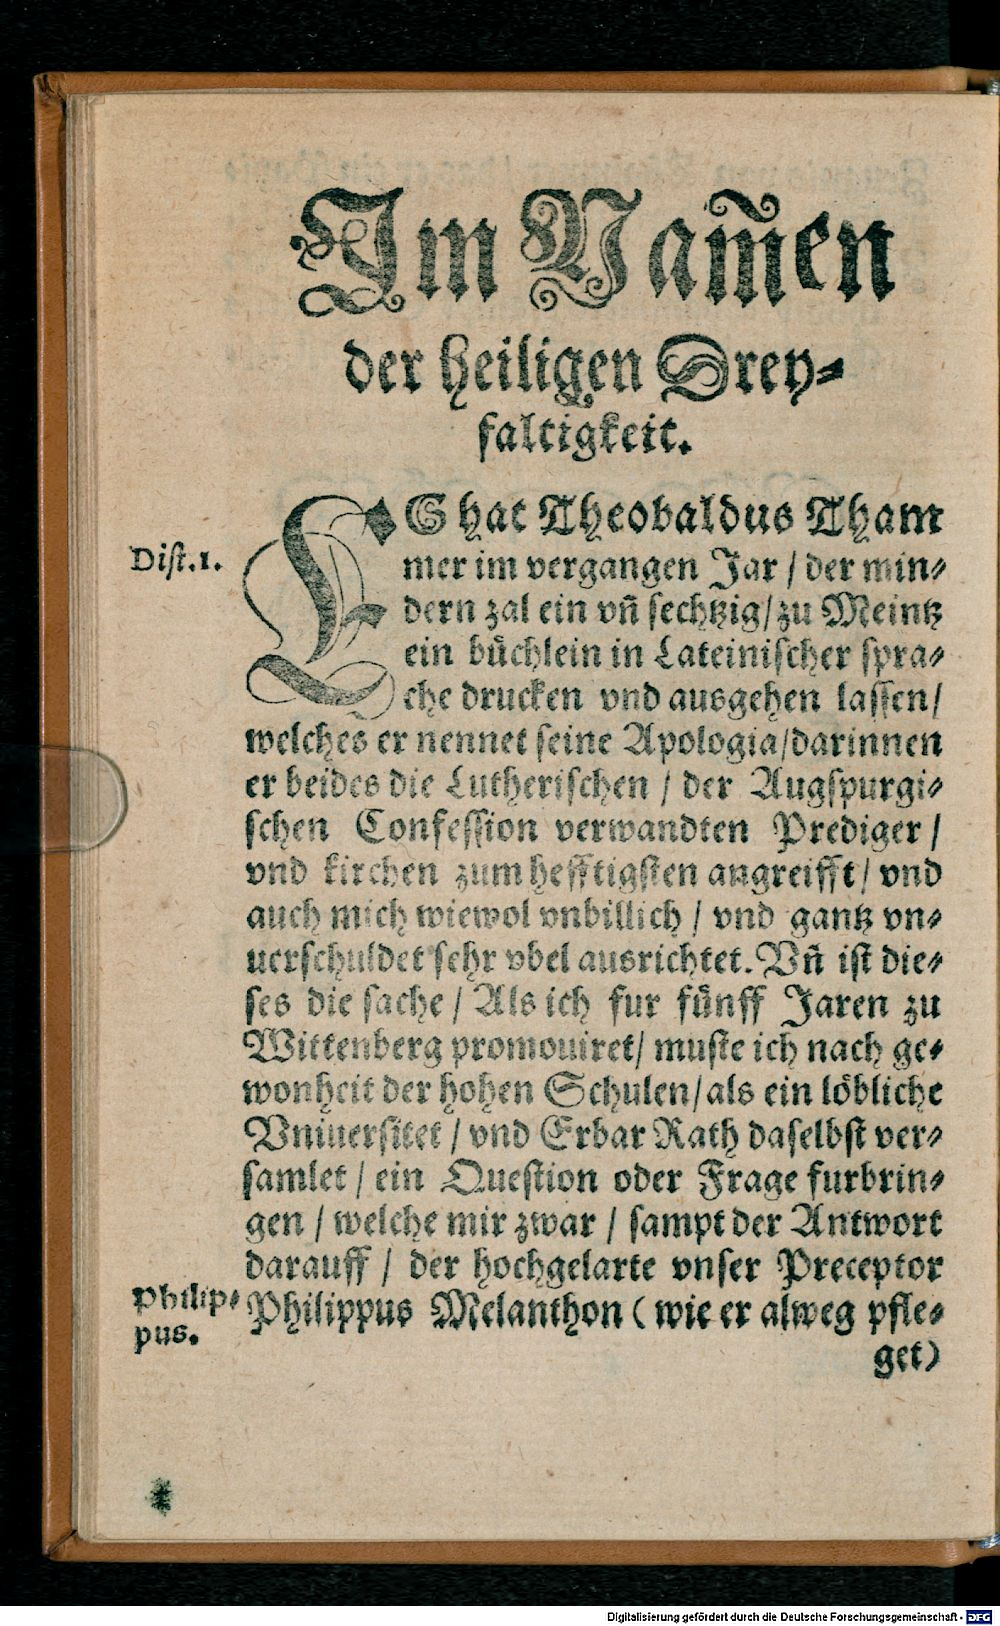 Im Nam̃en
der heiligen Drey⸗
faltigkeit.
Dist.1.
ES hat Theobaldus Tham
mer im vergangen Jar / der min⸗
dern zal ein vñ sechtzig / zu Meintz
ein bůchlein in Lateinischer spra⸗
che drucken vnd ausgehen lassen /
welches er nennet seine Apologia / darinnen
er beides die Lutherischen / der Augspurgi⸗
schen Confession verwandten Prediger /
vnd kirchen zum hefftigsten angreifft / vnd
auch mich wiewol vnbillich / vnd gantz vn⸗
uerschuldet sehr vbel ausrichtet. Vñ ist die⸗
ses die sache / Als ich fur fůnff Jaren zu
Wittenberg promouiret / muste ich nach ge⸗
wonheit der hohen Schulen / als ein löbliche
Vniuersitet / vnd Erbar Rath daselbst ver⸗
samlet / ein Question oder Frage furbrin⸗
gen / welche mir zwar / sampt der Antwort
darauff / der hochgelarte vnser Preceptor
Philip⸗
pus.
Philippus Melanthon ( wie er alweg pfle⸗
get)
Digitalisierung gefördert durch die Deutsche Forschungsgemeinschaft - DFG